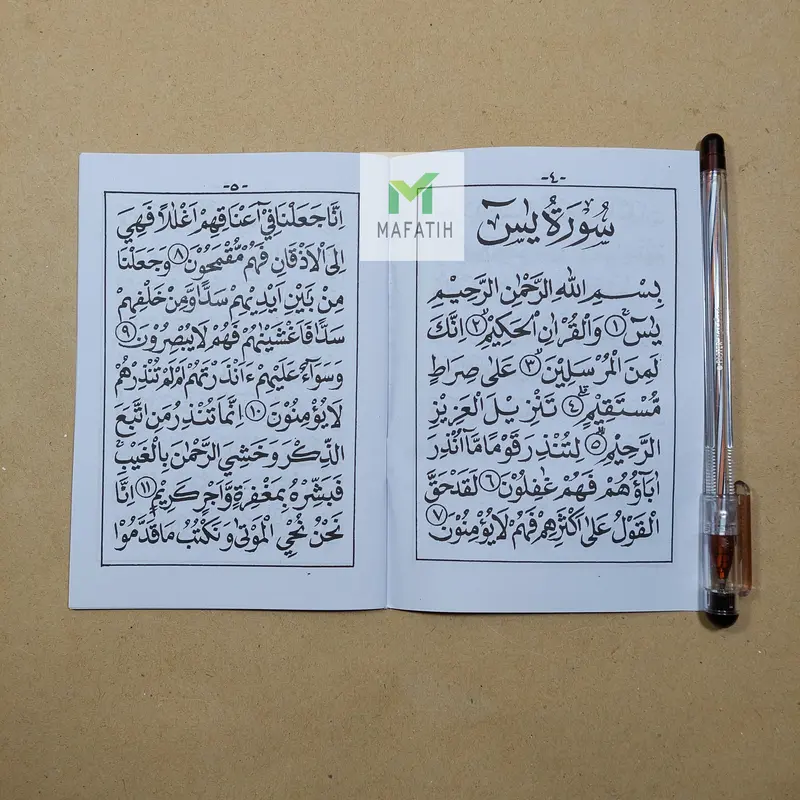 -٤-
سُوْرَةُ يٰسٓ
بِسْمِ اللّٰهِ الرَّحْمٰنِ الرَّحِيْمِ
يٰسٓ ۚ ﴿١﴾ وَالْقُرْاٰنِ الْحَكِيْمِ ۙ ﴿٢﴾ اِنَّكَ
لَمِنَ الْمُرْسَلِيْنَ ۙ ﴿٣﴾ عَلٰى صِرَاطٍ
مُّسْتَقِيْمٍ ۗ ﴿٤﴾ تَنْزِيْلَ الْعَزِيْزِ
الرَّحِيْمِ ۙ ﴿٥﴾ لِتُنْذِرَ قَوْمًا مَّآ اُنْذِرَ
اٰبَاۤؤُهُمْ فَهُمْ غٰفِلُوْنَ ﴿٦﴾ لَقَدْ حَقَّ
الْقَوْلُ عَلٰٓى اَكْثَرِهِمْ فَهُمْ لَا يُؤْمِنُوْنَ ﴿٧﴾
-٥-
اِنَّا جَعَلْنَا فِيْٓ اَعْنَاقِهِمْ اَغْلٰلًا فَهِيَ
اِلَى الْاَذْقَانِ فَهُمْ مُّقْمَحُوْنَ ﴿٨﴾ وَجَعَلْنَا
مِنْ بَيْنِ اَيْدِيْهِمْ سَدًّا وَّمِنْ خَلْفِهِمْ
سَدًّا فَاَغْشَيْنٰهُمْ فَهُمْ لَا يُبْصِرُوْنَ ﴿٩﴾
وَسَوَاۤءٌ عَلَيْهِمْ ءَاَنْذَرْتَهُمْ اَمْ لَمْ تُنْذِرْهُمْ
لَا يُؤْمِنُوْنَ ﴿١٠﴾ اِنَّمَا تُنْذِرُ مَنِ اتَّبَعَ
الذِّكْرَ وَخَشِيَ الرَّحْمٰنَ بِالْغَيْبِ ۚ
فَبَشِّرْهُ بِمَغْفِرَةٍ وَّاَجْرٍ كَرِيْمٍ ﴿١١﴾ اِنَّا
نَحْنُ نُحْيِ الْمَوْتٰى وَنَكْتُبُ مَا قَدَّمُوْا
MAFATIH